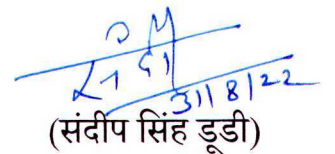 31/8/22
(संदीप सिंह डूडी)